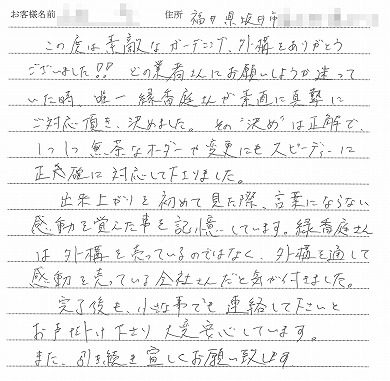 お客様名前 住所 福井県坂井市
この度は素敵なガーデニング、外構をありがとう
ございました!! どの業者さんにお願いしようか迷って
いた時、唯一緑香庭さんが素直に真摯に
ご対応頂き、決めました。その"決め"は正解で、
1つ1つ無茶なオーダーや変更にもスピーディーに
正確に対応して下さりました。
出来上がりを初めて見た際、言葉にならない
感動を覚えた事を記憶しています。緑香庭さん
は外構を売っているのではなく、外構を通して
感動を売っている会社さんだと気が付きました。
完了後も、小さな事でも連絡して下さいと
お声掛け下さり大変安心しています。
また、引き続き宜しくお願い致します